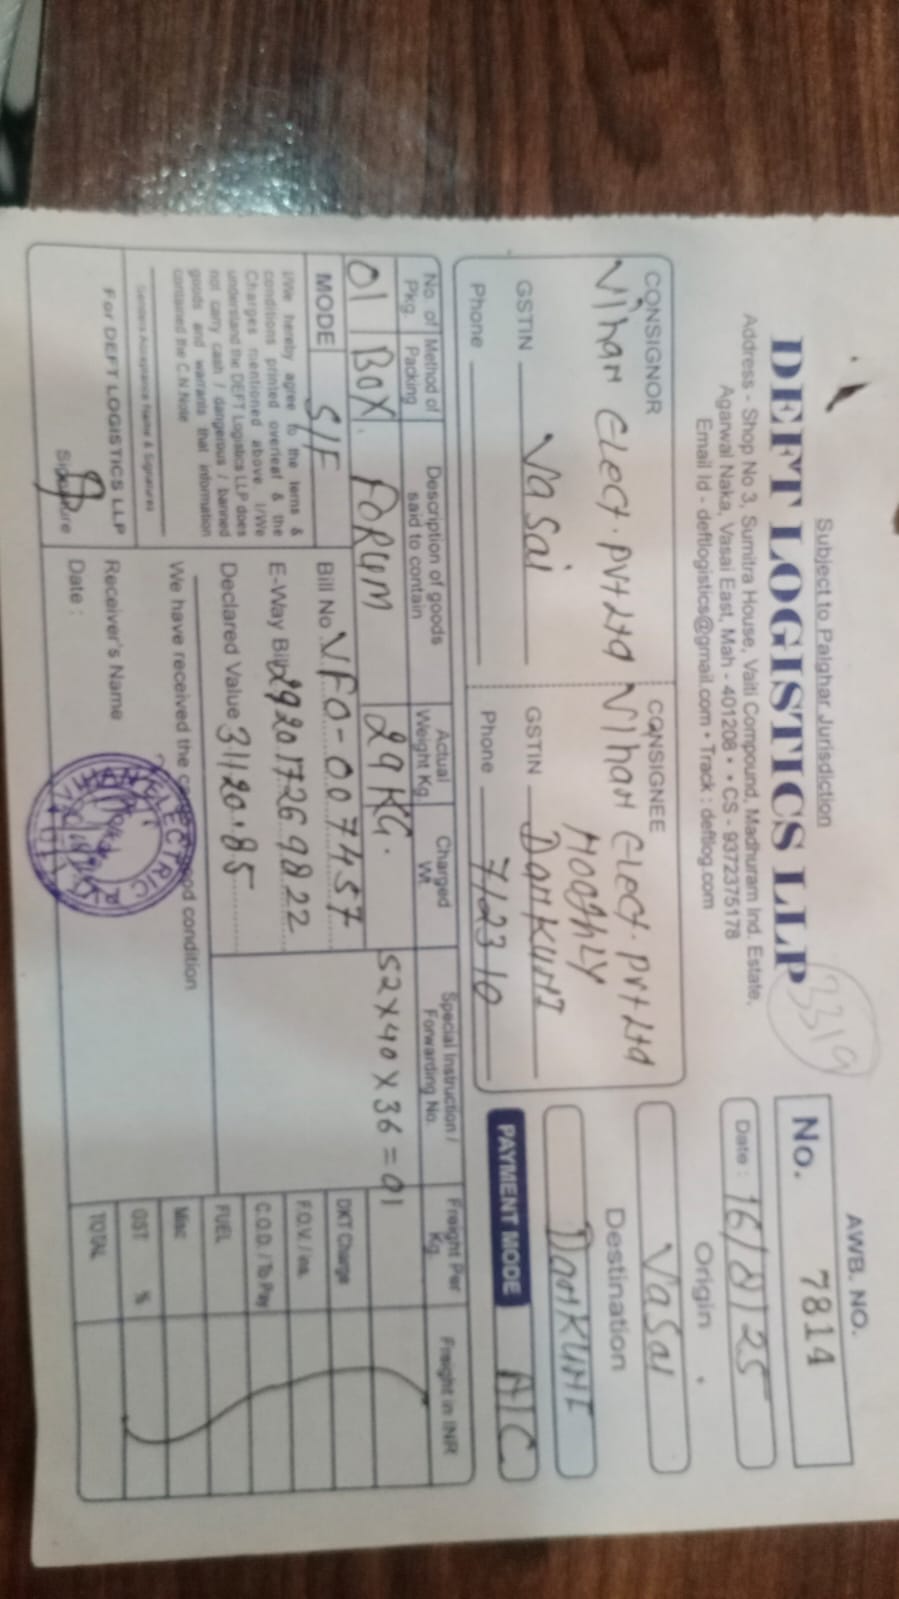 Subject to Palghar Jurisdiction
DEFT LOGISTICS LLP
3319
Address - Shop No 3, Sumitra House, Vaiti Compound, Madhuram Ind. Estate,
Agarwal Naka, Vasai East, Mah - 401208 • • CS - 9372375178
Email Id - deftlogistics@gmail.com • Track : deftlog.com
AWB. NO.
No. 7814
Date : 16/ /25
Origin
Vasai
Destination
DanKUNI
PAYMENT MODE A/C
CONSIGNOR
Vihan Elect. Pvt Ltd
Vasai
GSTIN
Phone
CONSIGNEE
Vihan Elect. Pvt Ltd
HooghLY
GSTIN DanKUNI
Phone 712310
No. of Pkg. Method of Packing Description of goods said to contain Actual Weight Kg Charged Wt. Special Instruction / Forwarding No. Freight Per Kg. Freight in INR
01 BOX. FORUM 29 KG. 52 X 40 X 36 = 01
MODE S/F
Bill No. VFO-007457
E-Way Bill 292017269822
Declared Value 31120.85
DKT Charge
F.O.V. / Ins.
C.O.D. / To Pay
FUEL
Misc
GST %
TOTAL
I/We hereby agree to the terms &
conditions printed overleaf & the
Charges mentioned above I/We
understand the DEFT Logistics LLP does
not carry cash / dangerous / banned
goods and warrants that information
contained the C.N.Note
Senders Acceptance Name & Signatures
For DEFT LOGISTICS LLP
Signature
We have received the good condition
Receiver's Name
Date :
ELECTRIC